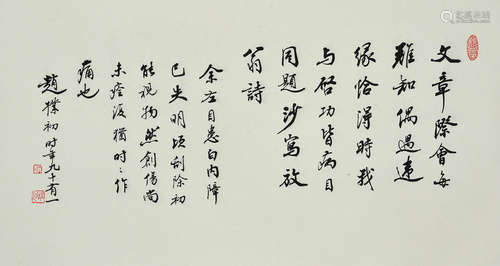 文章際會每
難知偶遇遠
緣恰得時我
与啓功皆病目
同題沙寫放
翁詩
余左目患白内障
已失明頃刮除初
能視物然創傷尚
未痊復猶時々作
痛也
趙樸初 时年九十有一